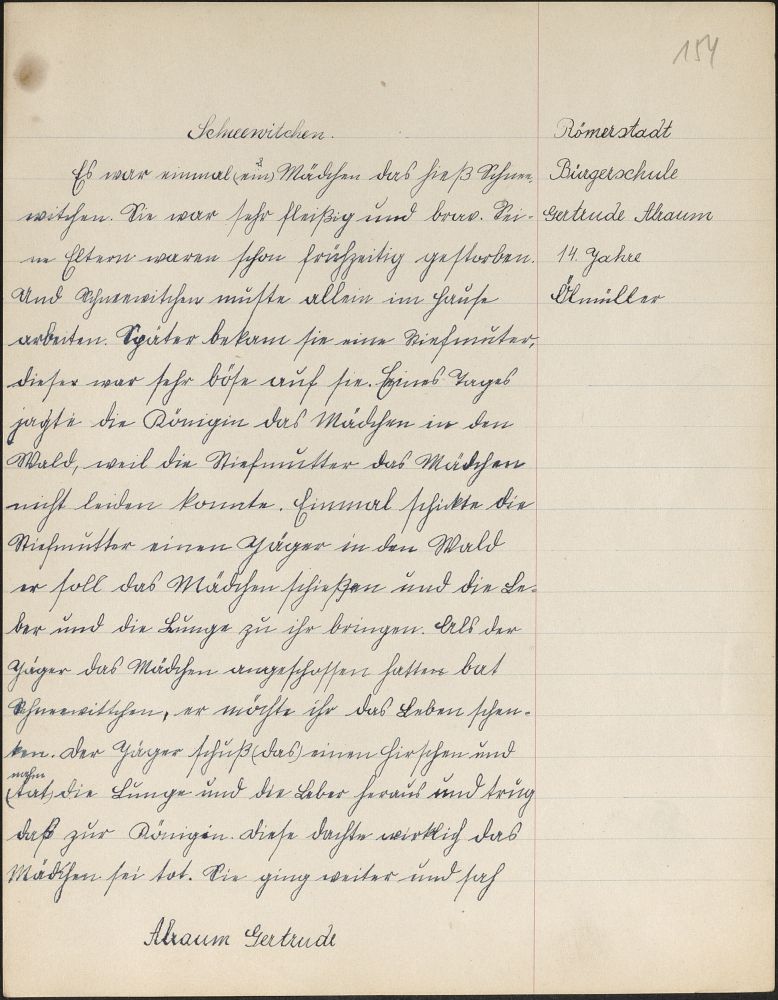 154
Schneewitchen.
Es war einmal (ein) Mädchen das hieß Schnee-
witchen. Sie war sehr fleißig und brav. Sei-
ne Eltern waren schon frühzeitig gestorben.
Und Schneewitchen mußte allein im Hause
arbeiten. Später bekam sie eine Stiefmuter,
dieser war sehr böse auf sie. Eines Tages
jagte die Königin das Mädchen in den
Wald, weil die Stiefmutter das Mädchen
nicht leiden konnte. Einmal schickte die
Stiefmutter einen Jäger in den Wald
er soll das Mädchen schießen und die Le-
ber und die Lunge zu ihr bringen. Als der
Jäger das Mädchen angeschossen hatte bat
Schneewittchen, er möchte ihr das Leben schen-
ken. Der Jäger schuß (das) einen Hirschen und
nahm
(tat) die Lunge und die Leber heraus und trug
daß zur Königin. Diese dachte wirklich das
Mädchen sei tot. Sie ging weiter und sah
Alraum Gertrude
Römerstadt
Bürgerschule
Gertrude Alraum
14. Jahre
Ölmüller